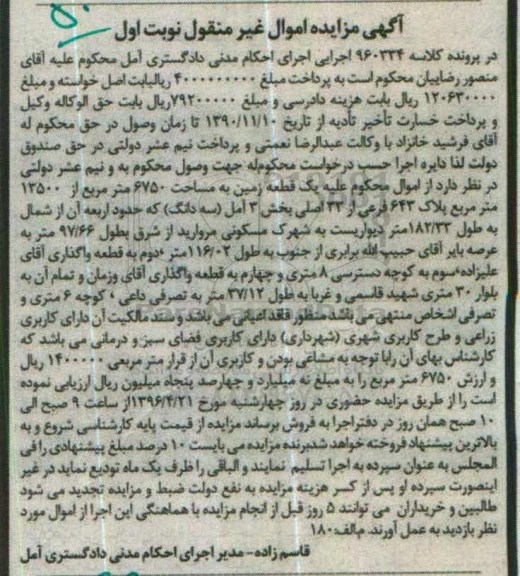 آگهی مزایده اموال غیر منقول نوبت اول
در پرونده کلاسه ۹۶۰۳۳۴ اجرایی اجرای احکام مدنی دادگستری آمل محکوم علیه آقای
منصور رضاییان محکوم است به پرداخت مبلغ ۴۰۰۰۰۰۰۰۰۰ ریالبابت اصل خواسته و مبلغ
۱۲۰۶۳۰۰۰۰ ریال بابت هزینه دادرسی و مبلغ ۷۹۲۰۰۰۰۰ریال بابت حق الوکاله وکیل
و پرداخت خسارت تأخیر تأدیه از تاریخ ۱۳۹۰/۱۱/۱۰ تا زمان وصول در حق محکوم له
آقای فرشید خانزاد با وکالت عبدالرضا نعمتی و پرداخت نیم عشر دولتی در حق صندوق
دولت لذا دایره اجرا حسب درخواست محکوم‌له جهت وصول محکوم به و نیم عشر دولتی
در نظر دارد از اموال محکوم علیه یک قطعه زمین به مساحت ۶۷۵۰ متر مربع از ۱۳۵۰۰
متر مربع پلاک ۶۴۳ فرعی از ۳۲ اصلی بخش ۳ آمل (سه دانگ) که حدود اربعه آن از شمال
به طول ۱۸۲/۳۳متر دیواریست به شهرک مسکونی مروارید از شرق بطول ۹۷/۶۶ متر به
عرصه بایر آقای حبیب الله برابری از جنوب به طول ۱۱۶/۰۲متر دوم به قطعه واگذاری آقای
علیزاده سوم به کوچه دسترسی ۸ متری و چهارم به قطعه واگذاری آقای وزمان و تمام آن به
بلوار ۳۰ متری شهید قاسمی و غربا به طول ۳۷/۱۲ متر به تصرفی داعی ، کوچه ۶ متری و
تصرفی اشخاص منتهی می باشد منظور فاقد اعیانی می باشد و سند مالکیت آن دارای کاربری
زراعی و طرح کاربری شهری (شهرداری) دارای کاربری فضای سبز و درمانی می باشد که
کارشناس بهای آن رابا توجه به مشاعی بودن و کاربری آن از قرار متر مربعی ۱۴۰۰۰۰۰ ریال
و ارزش ۶۷۵۰ متر مربع را به مبلغ نه میلیارد و چهارصد پنجاه میلیون ریال ارزیابی نموده
است را از طریق مزایده حضوری در روز چهارشنبه مورخ ۱۳۹۶/۴/۲۱از ساعت ۹ صبح الی
۱۰ صبح همان روز در دفتراجرا به فروش برساند مزایده از قیمت پایه کارشناسی شروع و به
بالاترین پیشنهاد فروخته خواهد شدبرنده مزایده می بایست ۱۰ درصد مبلغ پیشنهادی را فی
المجلس به عنوان سپرده به اجرا تسلیم نمایند و الباقی را ظرف یک ماه تودیع نماید در غیر
اینصورت سپرده او پس از کسر هزینه مزایده به نفع دولت ضبط و مزایده تجدید می شود
طالبین و خریداران می توانند ۵ روز قبل از انجام مزایده با هماهنگی این اجرا از اموال مورد
نظر بازدید به عمل آورند. م‌الف:۱۸۰
قاسم زاده- مدیر اجرای احکام مدنی دادگستری آمل